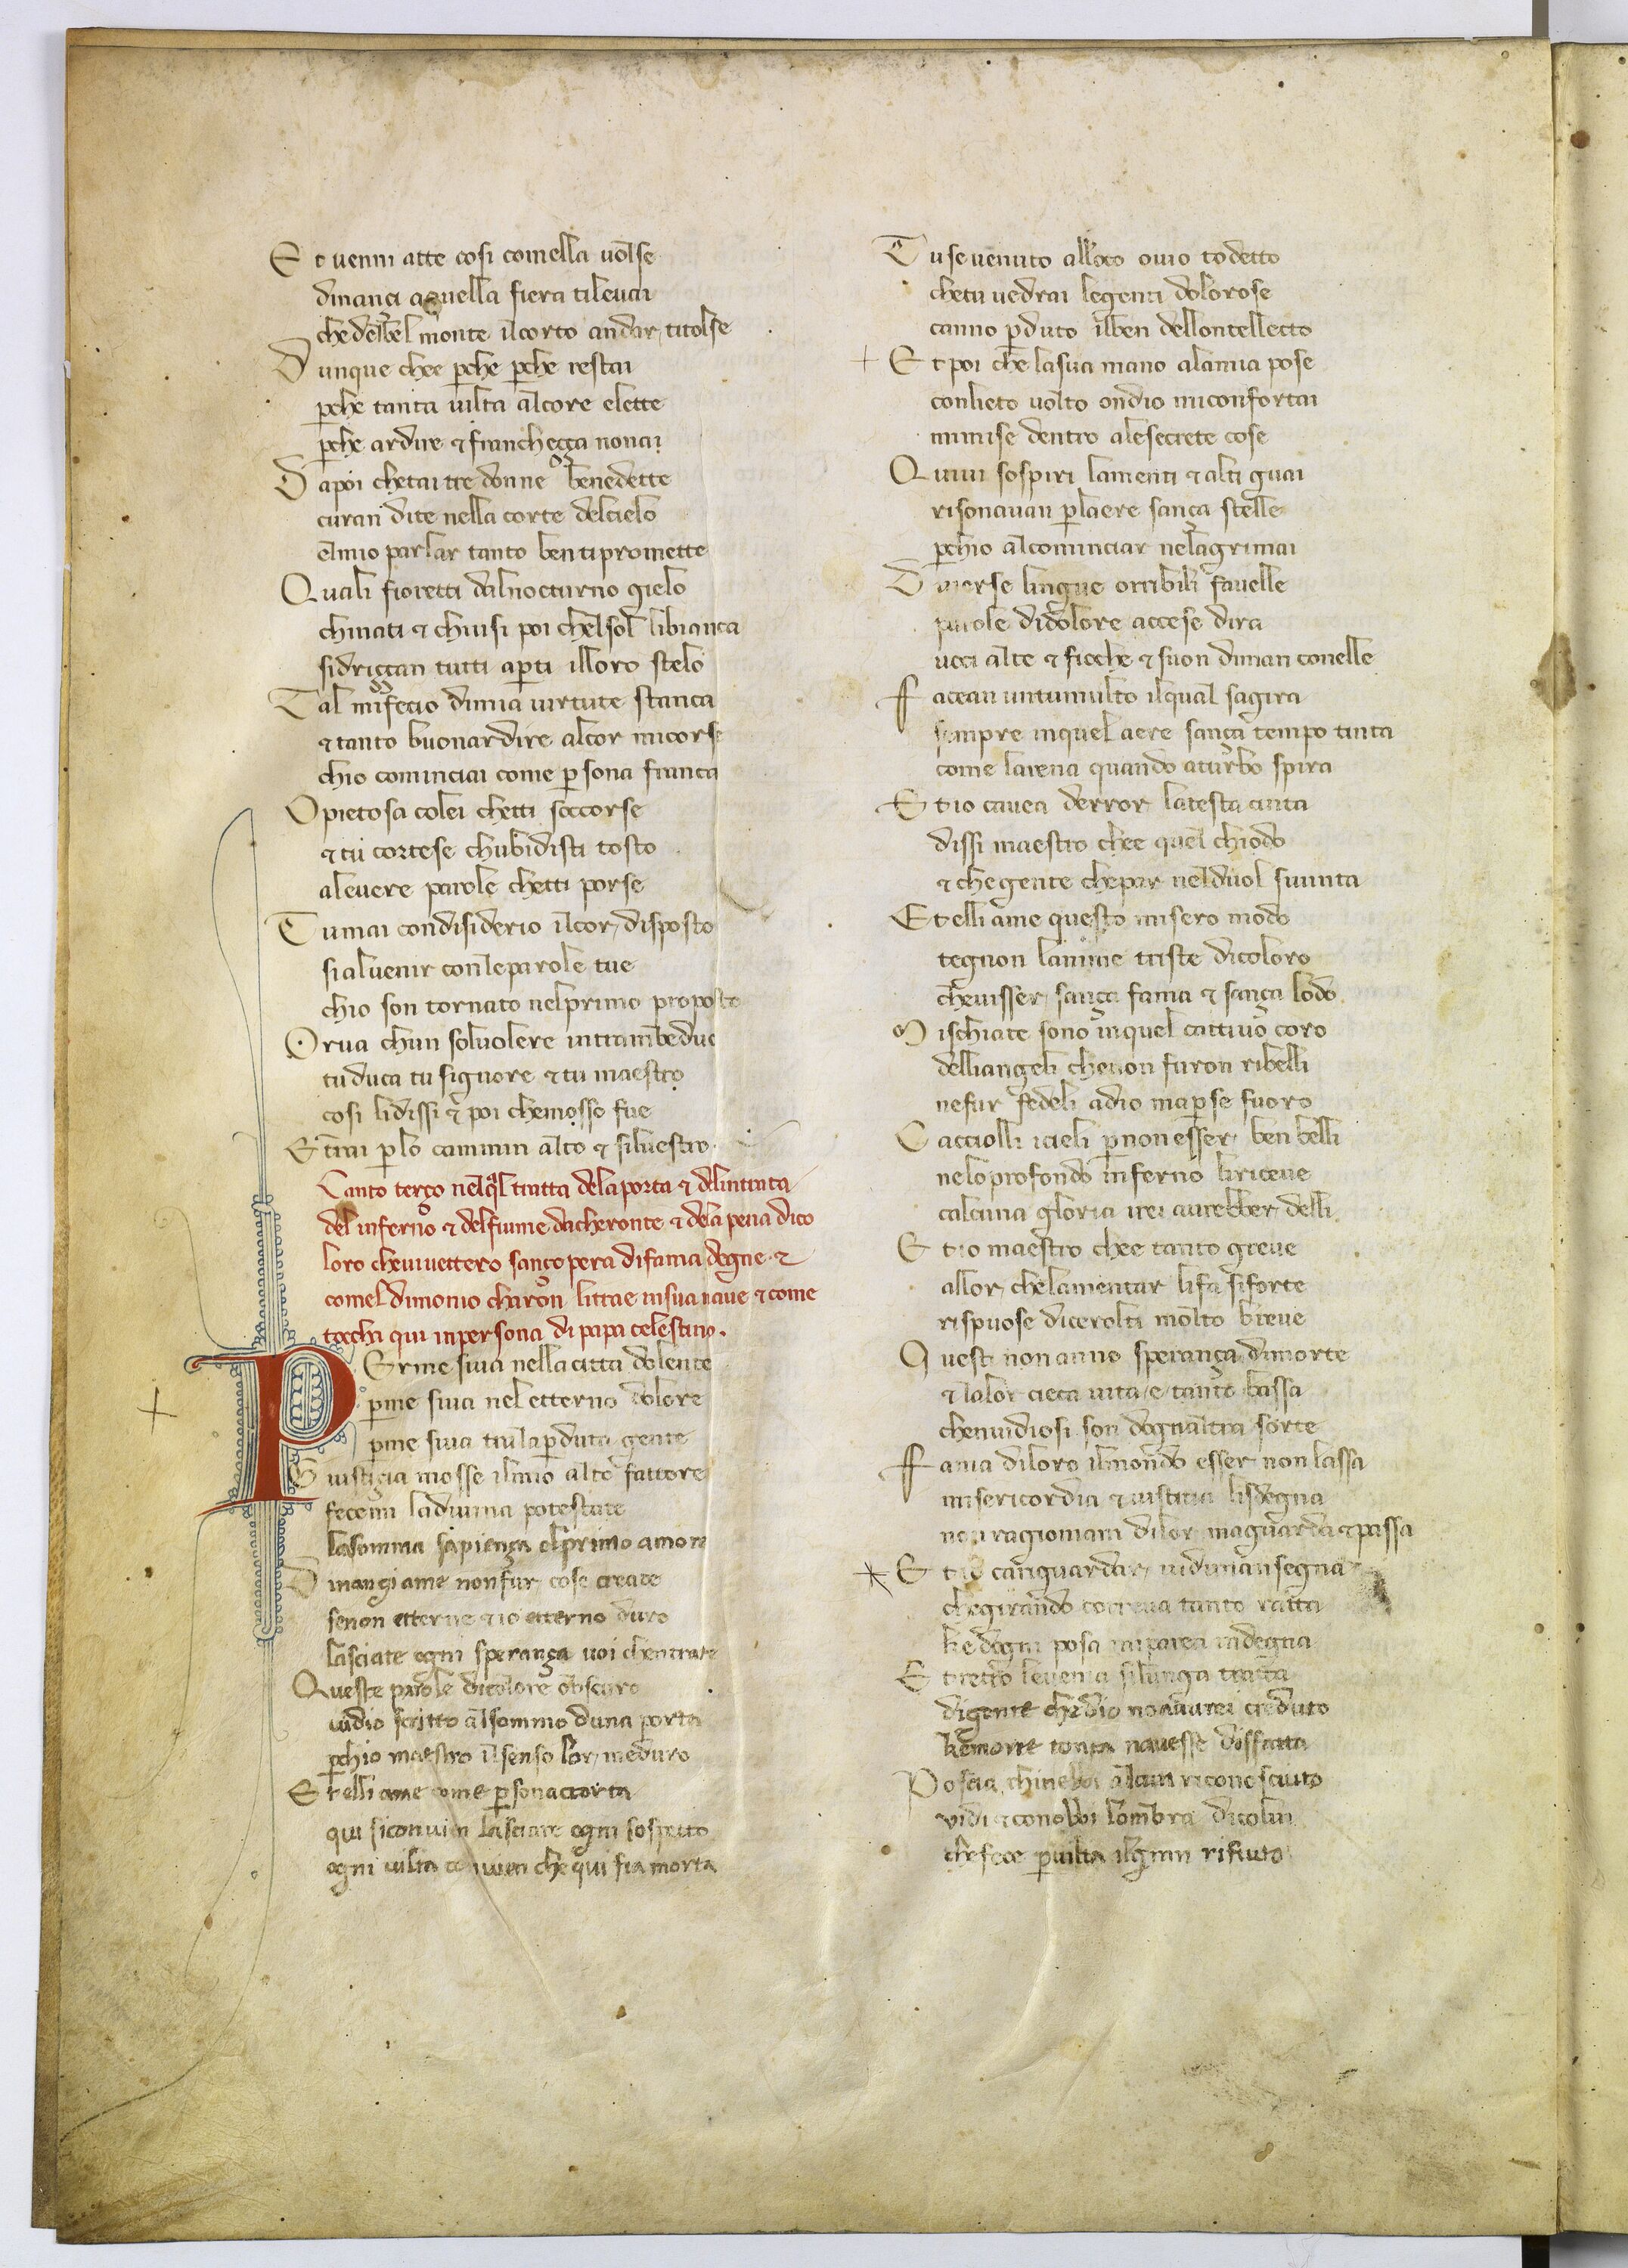 Et venni atte cosi comella volse
dinanci aquella fiera tilevai
chedelbel monte ilcorto andar titolse
Dunque chee perche perche restai
perche tanta vilta alcore elette
perche ardire & franchegga nonai
Dapoi chetai tre donne benedette
curan dite nella corte delcielo
elmio parlar tanto ben tipromette
Quali fioretti dalnocturno gielo
chinati & chiusi poi chelsol libianca
sidriççan tutti aperti illoro stelo
Tal mifecio dimia virtute stanca
& tanto buonardire alcor micorse
chio cominciai come persona franca
O pietosa colei chetti soccorse
& tu cortese chubidisti tosto
alevere parole chetti porse
Tumai condisiderio ilcor disposto
sialvenir conleparole tue
chio son tornato nelprimo proposto
Orva chun solvolere intrambedue
tu duca tu signore & tu maestro
cosi lidissi & poi chemosso fue
Etrai perlo cammin alto & silvestro
Canto terço nelqual tratta delaporta & delintrata
del inferno & delfiume dacheronte & dela pena dico
loro chevivettero sancopera difama degne &
comel dimonio charon litrae insua nave & come
tocchi qui inpersona di papa celestino.
PErme siva nella citta dolente
perme siva nel etterno dolore
perme siva tralaperduta gente
Giustiçia mosse ilmio alto fattore
fecemi ladivina potestate
lasomma sapiença elprimo amore
Dinançi ame nonfur cose create
senon etterne & io etterno duro
lasciate ogni sperança voi chentrate
Queste parole dicolore obscuro
vidio scritto alsommo duna porta
perchio maestro ilsenso lor meduro
Et elli ame come persona accorta
qui siconvien lasciare ogni sospetto
ogni vilta convien che qui sia morta
Tu se venuto alloco ovio todetto
chetu vedrai legenti dolorose
canno perduto ilben dellontellecto
Et poi che lasua mano alamia pose
conlieto volto ondio miconfortai
mimise dentro alesecrete cose
Quivi sospiri lamenti & alti guai
risonavan perlaere sança stelle
perchio alcominciar nelagrimai
Diverse lingue orribili favelle
parole didolore accese dira
voci alte & fioche & suon diman conelle
Facean untumulto ilqual sagira
sempre inquel aere sança tempo tinta
come larena quando aturbo spira
Et io cavea derror latesta cinta
dissi maestro chee quel chiodo
& chegente chepar nelduol sivinta
Et elli ame questo misero modo
tegnon lanime triste dicoloro
chevisser sança fama & sança lodo
Mischiate sono inquel cattivo coro
delliangeli chenon furon ribelli
nefur fedeli adio maperse fuoro
Cacciolli icieli pernonesser ben belli
neloprofondo inferno liriceve
calcuna gloria irei avrebber delli
Et io maestro chee tanto greve
allor chelamentar lifa siforte
rispuose dicerolti molto breve
Questi non anno sperança dimorte
& lalor cieca vita e tanto bassa
chenvidiosi son dognaltra sorte
Fama diloro ilmondo esser non lassa
misericordia & iustitia lisdegna
non ragioniam dilor maguarda & passa
Et io canguardar vidi unansegna
chegirando correva tanto ratta
ke dogni posa miparea indegna
Et retro levenia silunga tratta
digente chedio nonavrei creduto
kemorte tanta navesse disfatta
Poscia chinebbi alcun riconosciuto
vidi & conobbi lombra dicolui
chefece pervilta ilgran rifiuto